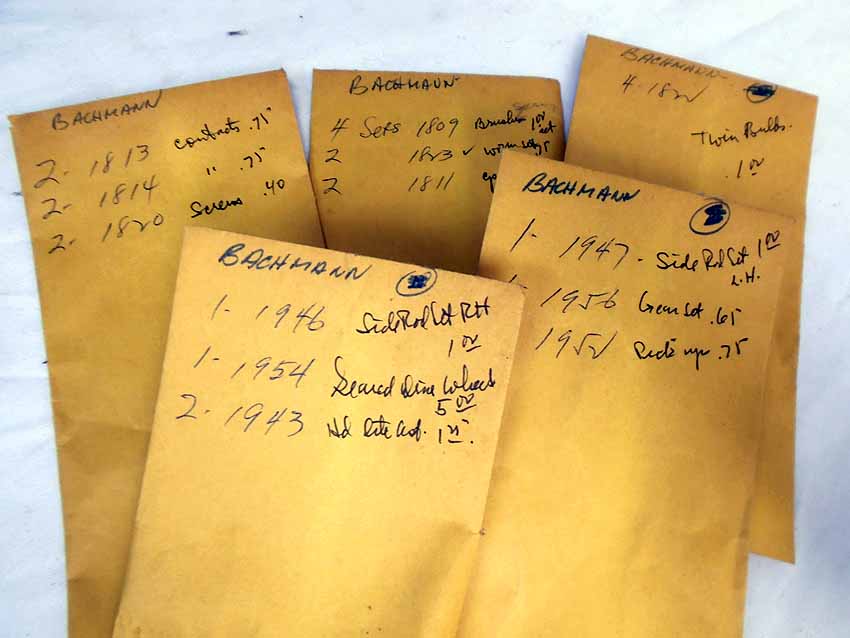 BACHMANN
2- 1813 contacts .75
2- 1814 " .75
2- 1820 Screws .40
BACHMANN
4 Sets 1809 Brushes 1.00 set
2 1823 worm
2 1811
BACHMANN
4-1822
Twin Bulbs.
.1 00
BACHMANN
1- 1946 Side Rod Set RH
1 00
1- 1954 Geared Drive Wheel
5 00
2- 1943 Hd Lite
BACHMANN
1- 1947 - Side Rod Set 1 00
L.H.
1- 1956 Gear Set .65
1952 Pick up .75